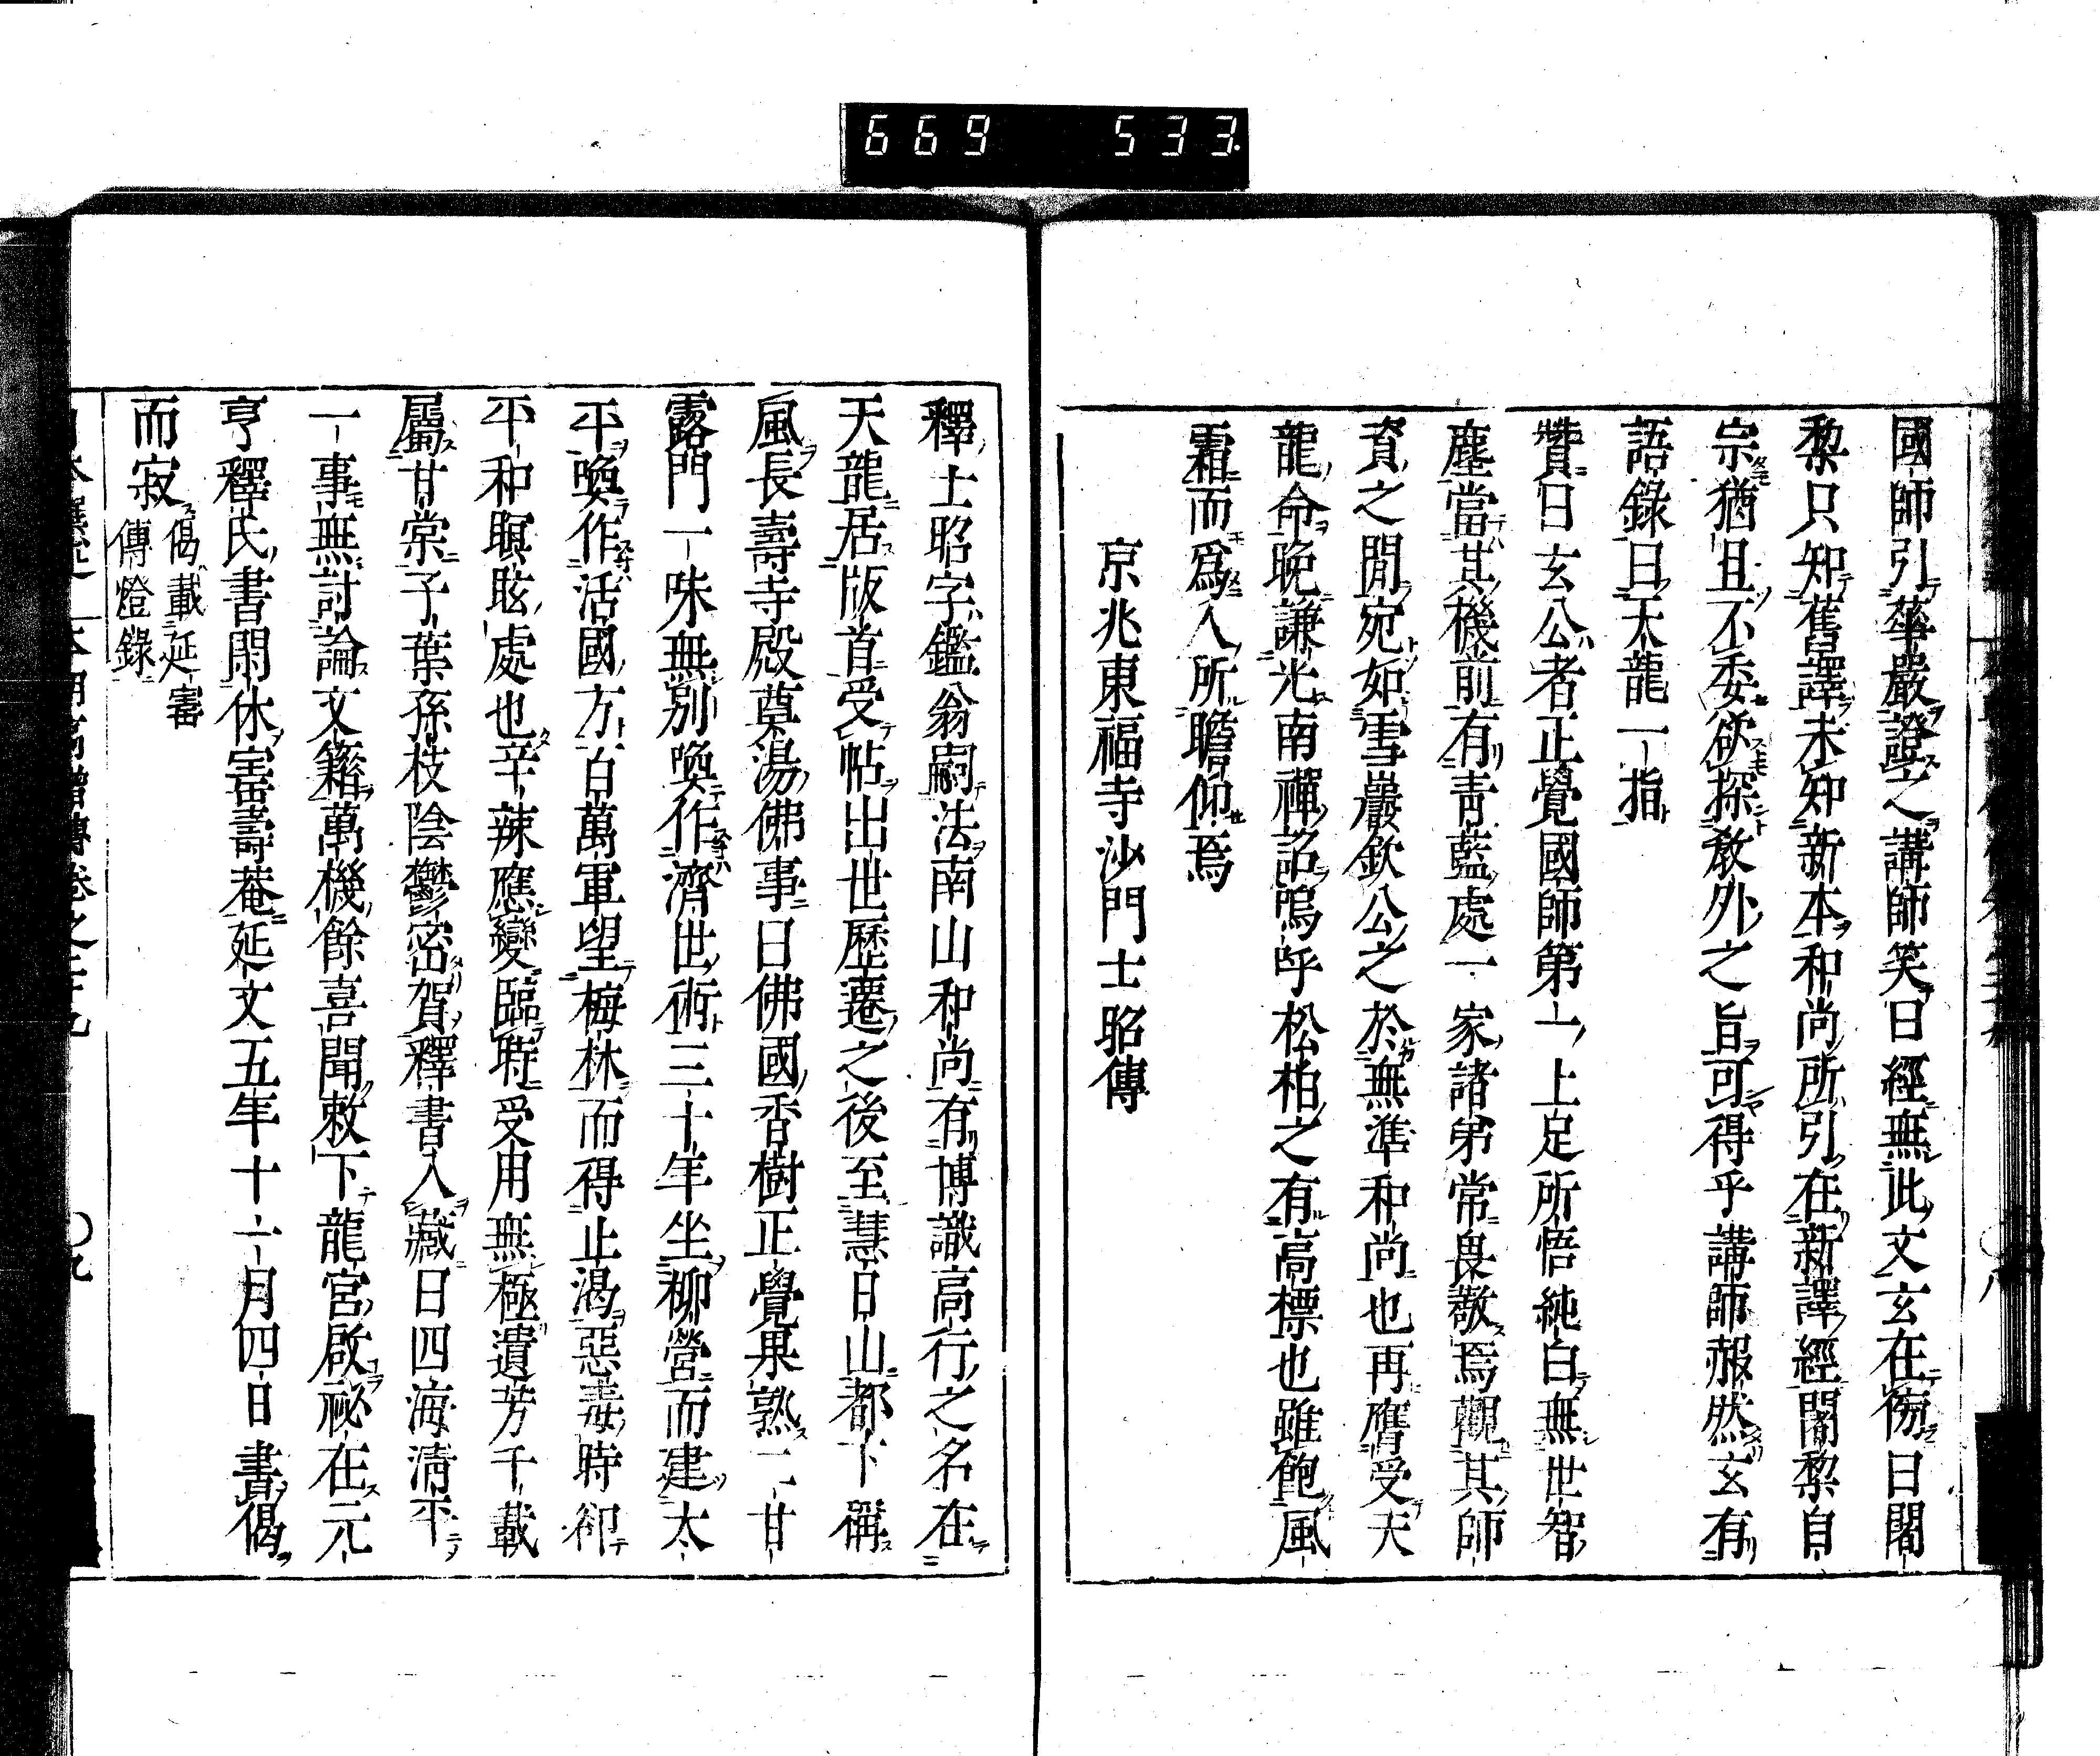 669 533
國師引華嚴證之講師笑曰經無此文玄在傍曰闍
黎只知舊譯未知新本和尚所引在新譯經闍黎自
宗猶且不委欲探教外之旨可得乎講師赧然玄有
語錄曰天龍一指
贊曰玄公者正覺國師第一上足所悟純白無世智
塵當其機前有靑藍處一家諸弟常畏敬焉觀其師
資之間宛如雪巖欽公之於無準和尚也再膺受天
龍命晚謙光南禪詔嗚呼松柏之有高標也雖飽風
霜而爲人所瞻仰焉
京兆東福寺沙門士昭傳
釋士昭字鑑翁嗣法南山和尚有博識高行之名在
天龍居版首受帖出世歷遷之後至慧日山都下稱
風長壽寺殿奠湯佛事曰佛國香樹正覺果熟二甘
露門一味無別喚作濟世術三十年坐柳營而建太
平喚作活國方百萬軍望梅林而得止渴惡毒時卻
平和瞑眩處也辛辣應變臨時受用無極遺芳千載
屬甘棠子葉孫枝陰鬱密賀釋書入藏曰四海淸平
一事無討論文籍萬機餘喜聞敕下龍宮啟祕在元
亨釋氏書閑休畱壽菴延文五年十一月四日書偈
而寂偈載延寶
傳燈錄